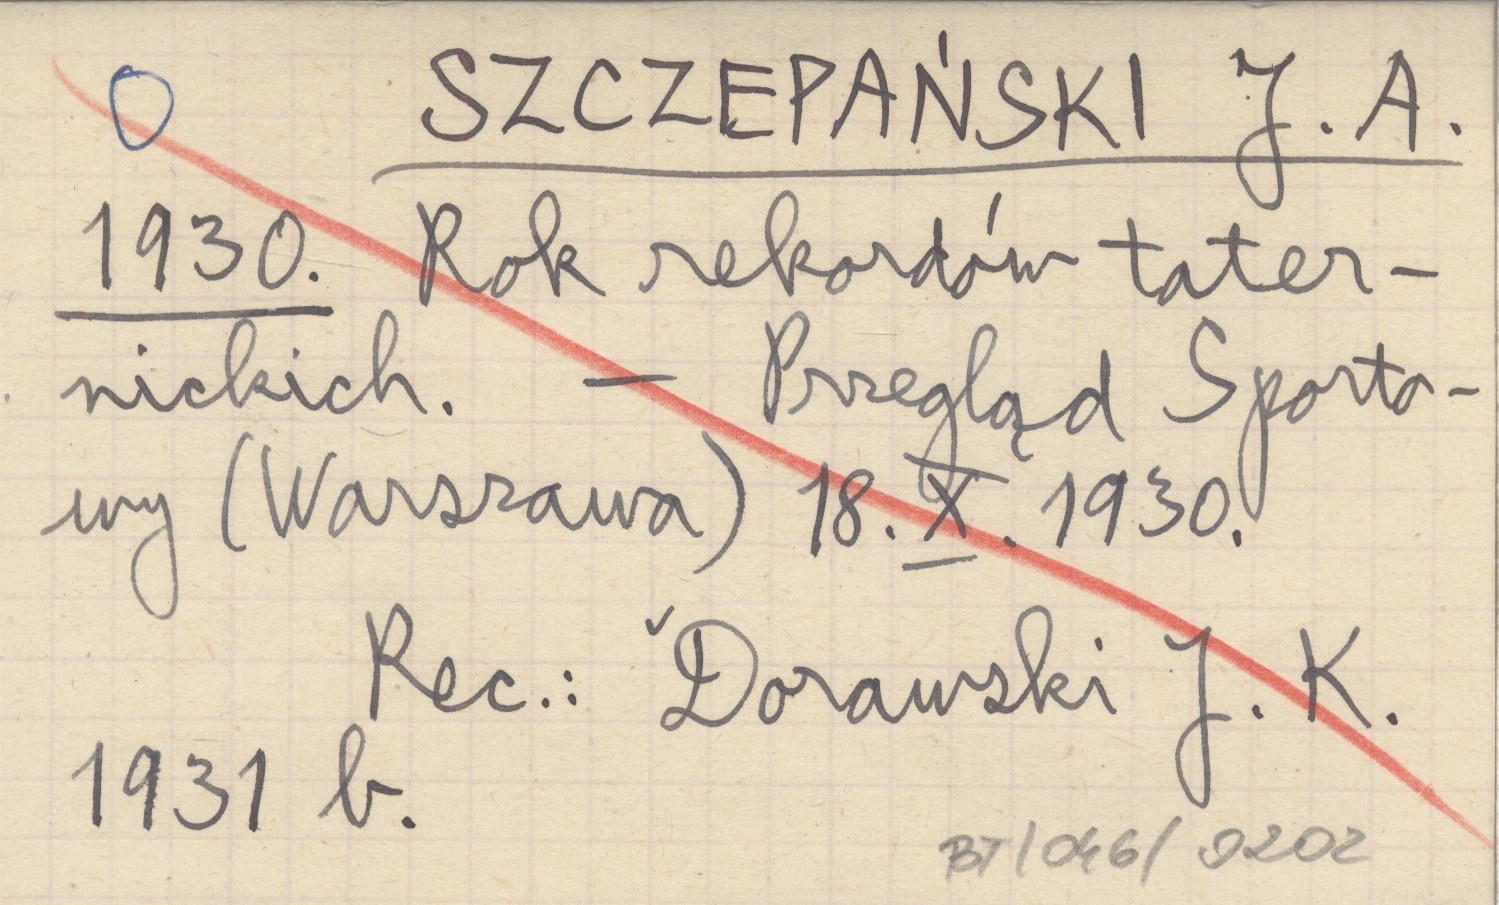 SZCZEPAŃSKI J. A.
1930. Rok rekordów tater-
nickich. — Przegląd Sporto-
wy (Warszawa) 18. X. 1930.
Rec.: Dorawski J. K.
1931 b.
BT/046/9202